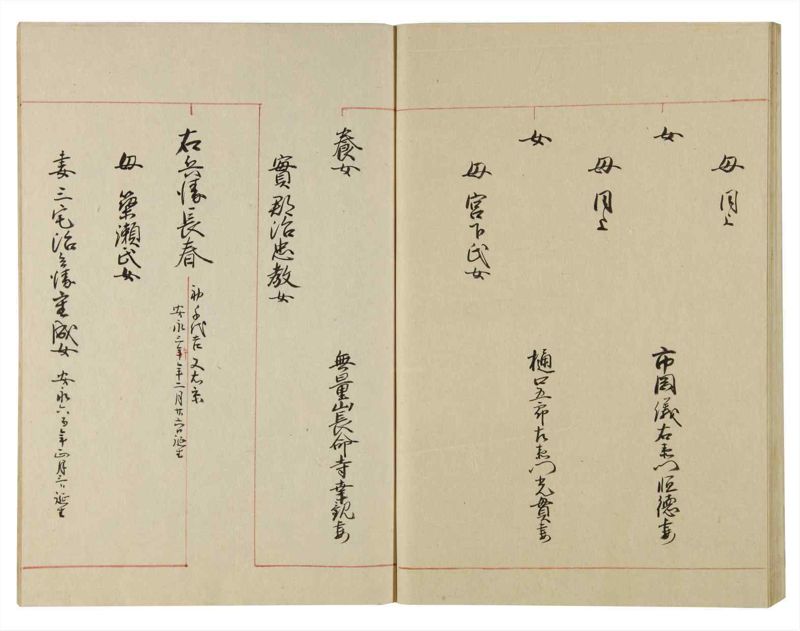 母 同上
女
市岡儀右衛門恒徳妻
母 同上
女
樋口五郎左衛門光貫妻
母 宮下氏女
養女
無量山長命寺幸観妻
實那治忠教女
右兵衛長春
初千代吉又右京
安永二年二月廿六日誕生
母 簗瀬氏女
妻三宅治兵衛重威女
安永六年正月三日誕生